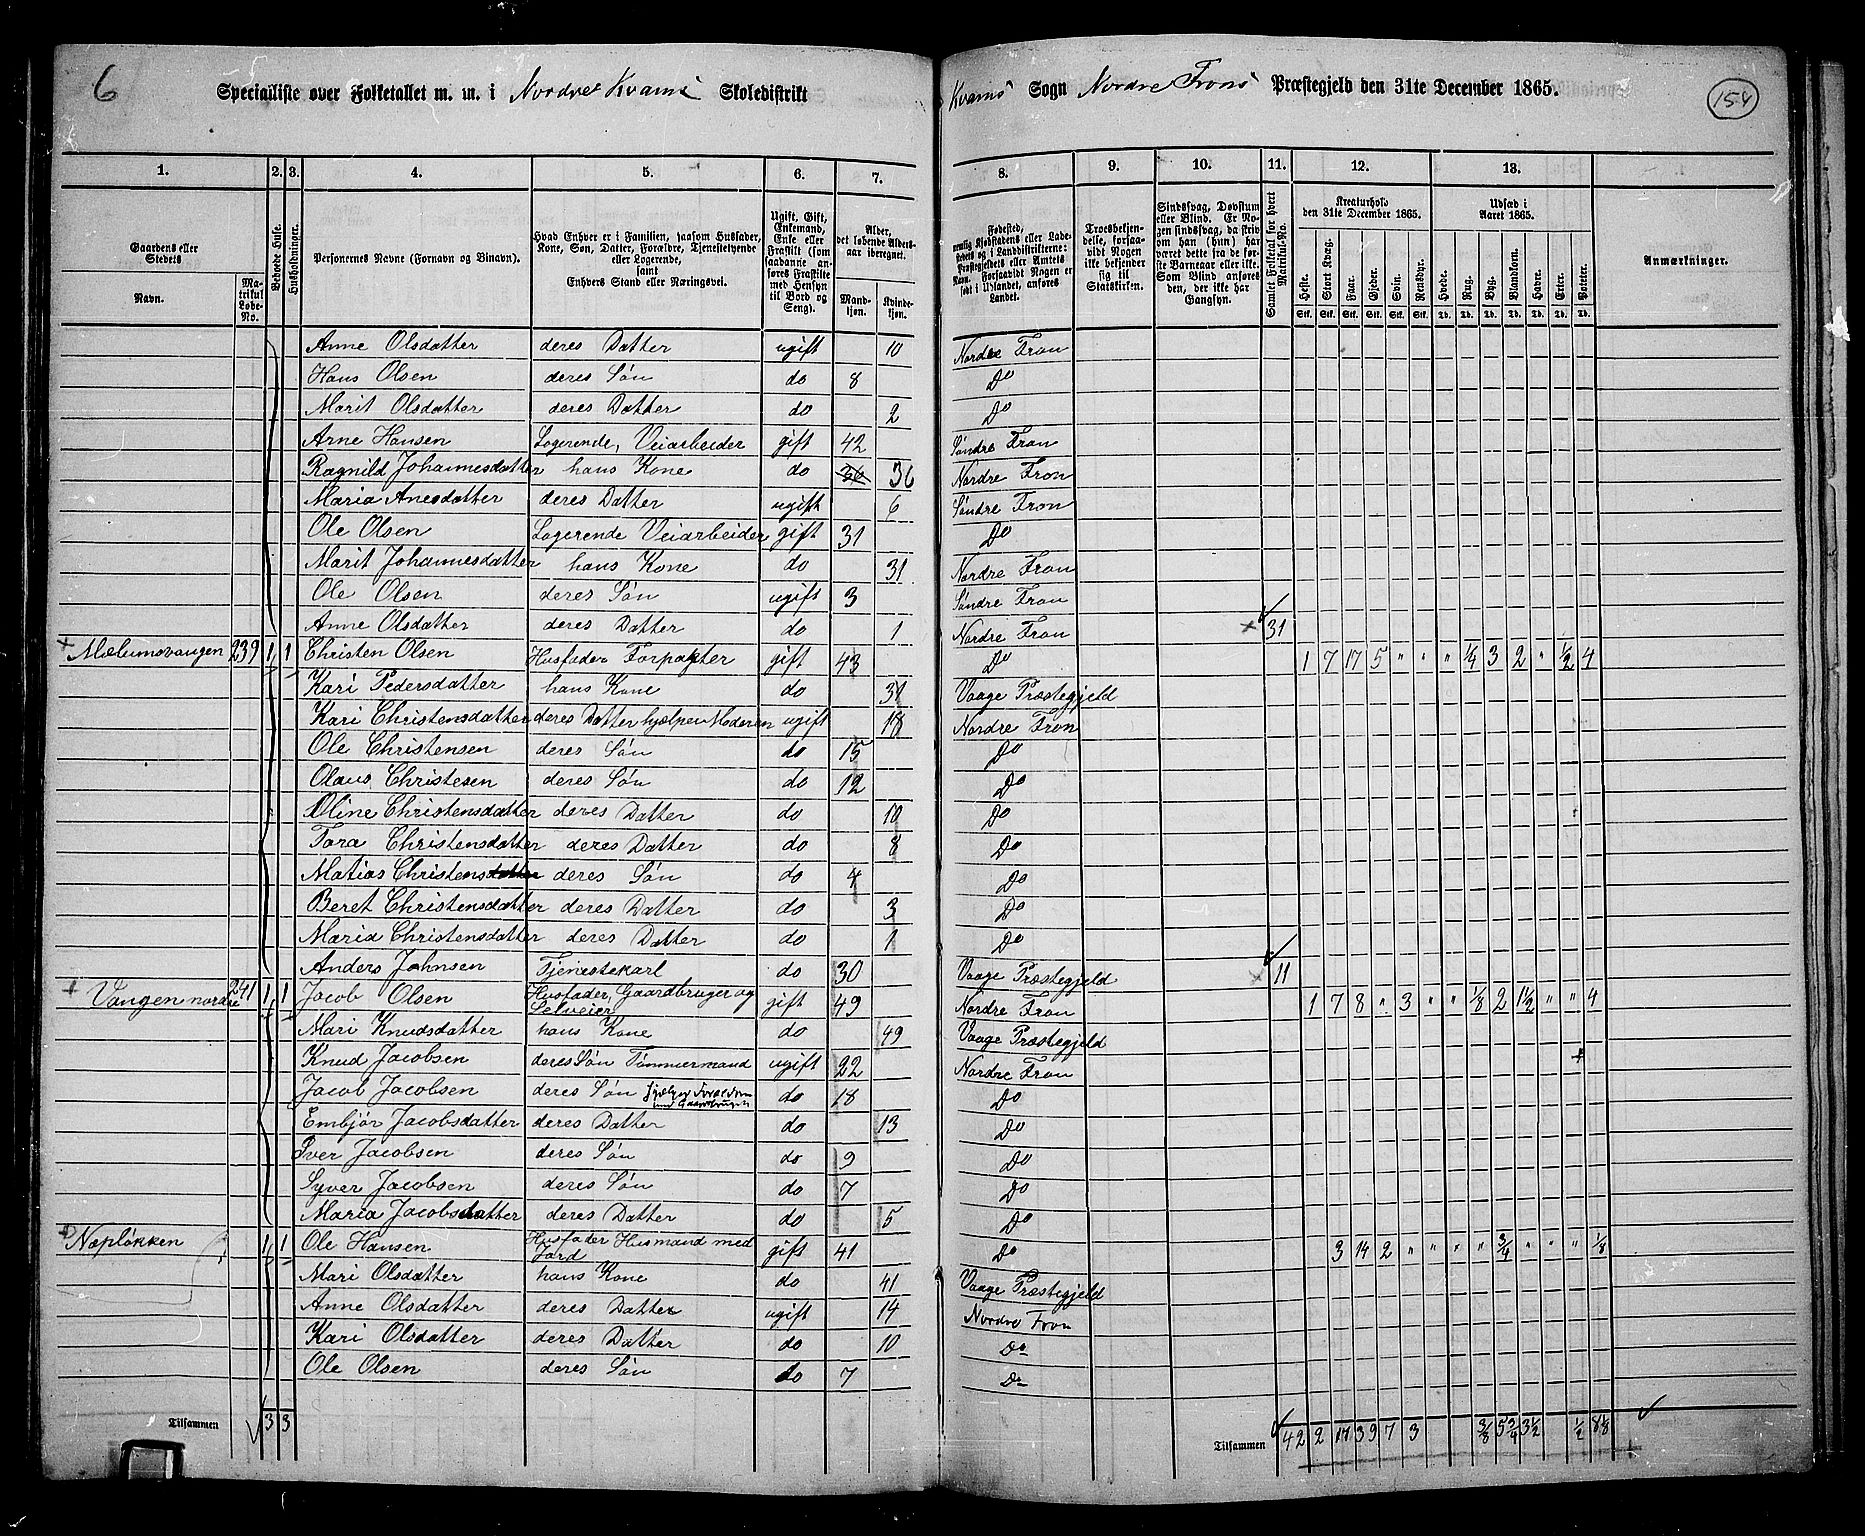 6 Specialliste over Folketallet m. m. i Nordre Kvams Skoledistrikt Kvams Sogn Nordre Frons Præstegjeld den 31te December 1865. 154
1. 2. 3. 4. 5. 6. 7. 8. 9. 10. 11. 12. 13.
Gaardens eller Stedets
Navn.
Matrikul Løbe-No.
Beboede Huse.
Husholdninger.
Personernes Navne (Fornavn og Binavn).
Hvad Enhver er i Familien, saasom Husfader, Kone, Søn, Datter, Forældre, Tjenestetyende eller Logerende, samt Enhvers Stand eller Næringsvei.
Ugift, Gift, Enkemand, Enke eller Fraskilt (som saadanne anføres Fraskilte med Hensyn til Bord og Seng).
Alder, det løbende Alders-aar iberegnet.
Mand-kjøn. Kvinde-kjøn.
Fødested,
Troesbekjendelse, forsaavidt Nogen ikke bekjender sig til Statskirken.
Sindssvag, Døvstum eller Blind. Er Nogen sindssvag, da skrives om han (hun) har været dette fra de første Barneaar eller ikke. Som Blind anføres den, der ikke har Gangsyn.
Samlet Folketal for hvert Matrikul-No.
Kreaturhold den 31te December 1865.
Heste. Stort Kvæg. Faar. Gjeder. Svin. Rensdyr.
Udsæd i Aaret 1865.
Hvede. Rug. Byg. Blandkorn. Havre. Erter. Poteter.
Anmærkninger.
Anne Olsdatter deres Datter ugift 10 Nordre Fron
Hans Olsen deres Søn do 8 Do
Marit Olsdatter deres Datter do 2 Do
Arne Hansen Logerende, Veiarbeider gift 42 Søndre Fron
Ragnild Johannesdatter hans Kone do 36 36 Nordre Fron
Maria Anesdatter deres Datter ugift 6 Søndre Fron
Ole Olsen Logerende Veiarbeider gift 31 Do
Marit Johannesdatter hans Kone do 31 Nordre Fron
Ole Olsen deres Søn ugift 3 Søndre Fron
Anne Olsdatter deres Datter do 1 Nordre Fron × 31
+ Mælumsvangen 239 1 1 Christen Olsen Husfader Forpagter gift 43 Do 1 7 17 5 " " " 1/4 3 2 " 1/2 4
Kari Pedersdatter hans Kone do 31 Vaage Præstegjeld
Kari Christensdatter deres Datter hjelper Moderen ugift 18 Nordre Fron
Ole Christensen deres Søn do 15 Do
Olaus Christesen deres Søn do 12 Do
Oline Christensdatter deres Datter do 10 Do
Tora Christensdatter deres Datter do 8 Do
Matias Christensdatter deres Søn do 4 Do
Beret Christensdatter deres Datter do 3 Do
Maria Christensdatter deres Datter do 1 Do
Anders Johnsen Tjenestekarl do 30 Vaage Præstegjeld × 11
+ Vangen nordre 241 1 1 Jacob Olsen Husfader, Gaardbruger og Selveier gift 49 Nordre Fron 1 7 8 " 3 " " 1/8 2 1 1/2 " " 4
Mari Knudsdatter hans Kone do 49 Vaage Præstegjeld
Knud Jacobsen deres Søn Tømmermand ugift 22 Nordre Fron
Jacob Jacobsen deres Søn hjelper Forældrene med Gaardsbruget do 18 Do
Embjør Jacobsdatter deres Datter do 13 Do
Iver Jacobsen deres Søn do 9 Do
Syver Jacobsen deres Søn do 7 Do
Maria Jacobsdatter deres Datter do 5 Do
Næpløkken 1 1 Ole Hansen Husfader Husmand med Jord gift 41 Do 3 14 2 " " " " 3/4 " " " 1/8
Mari Olsdatter hans Kone do 41 Vaage Præstegjeld
Anne Olsdatter deres Datter ugift 14 Nordre Fron
Kari Olsdatter deres Datter do 10 Do
Ole Olsen deres Søn do 7 Do
Tilsammen 3 3 Tilsammen 42 2 17 39 7 3 3/8 5 3/4 3 1/2 1/2 8 1/8